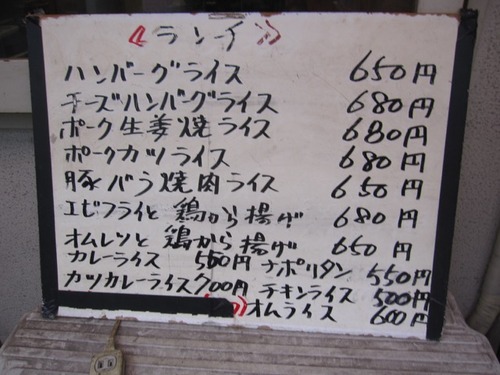 《ランチ》
ハンバーグライス 650円
チーズハンバーグライス 680円
ポーク生姜焼ライス 680円
ポークカツライス 680円
豚バラ焼肉ライス 650円
エビフライと鶏から揚げ 680円
オムレツと鶏から揚げ 650円
カレーライス 500円 ナポリタン 550円
カツカレーライス 700円 チキンライス 500円
オムライス 600円